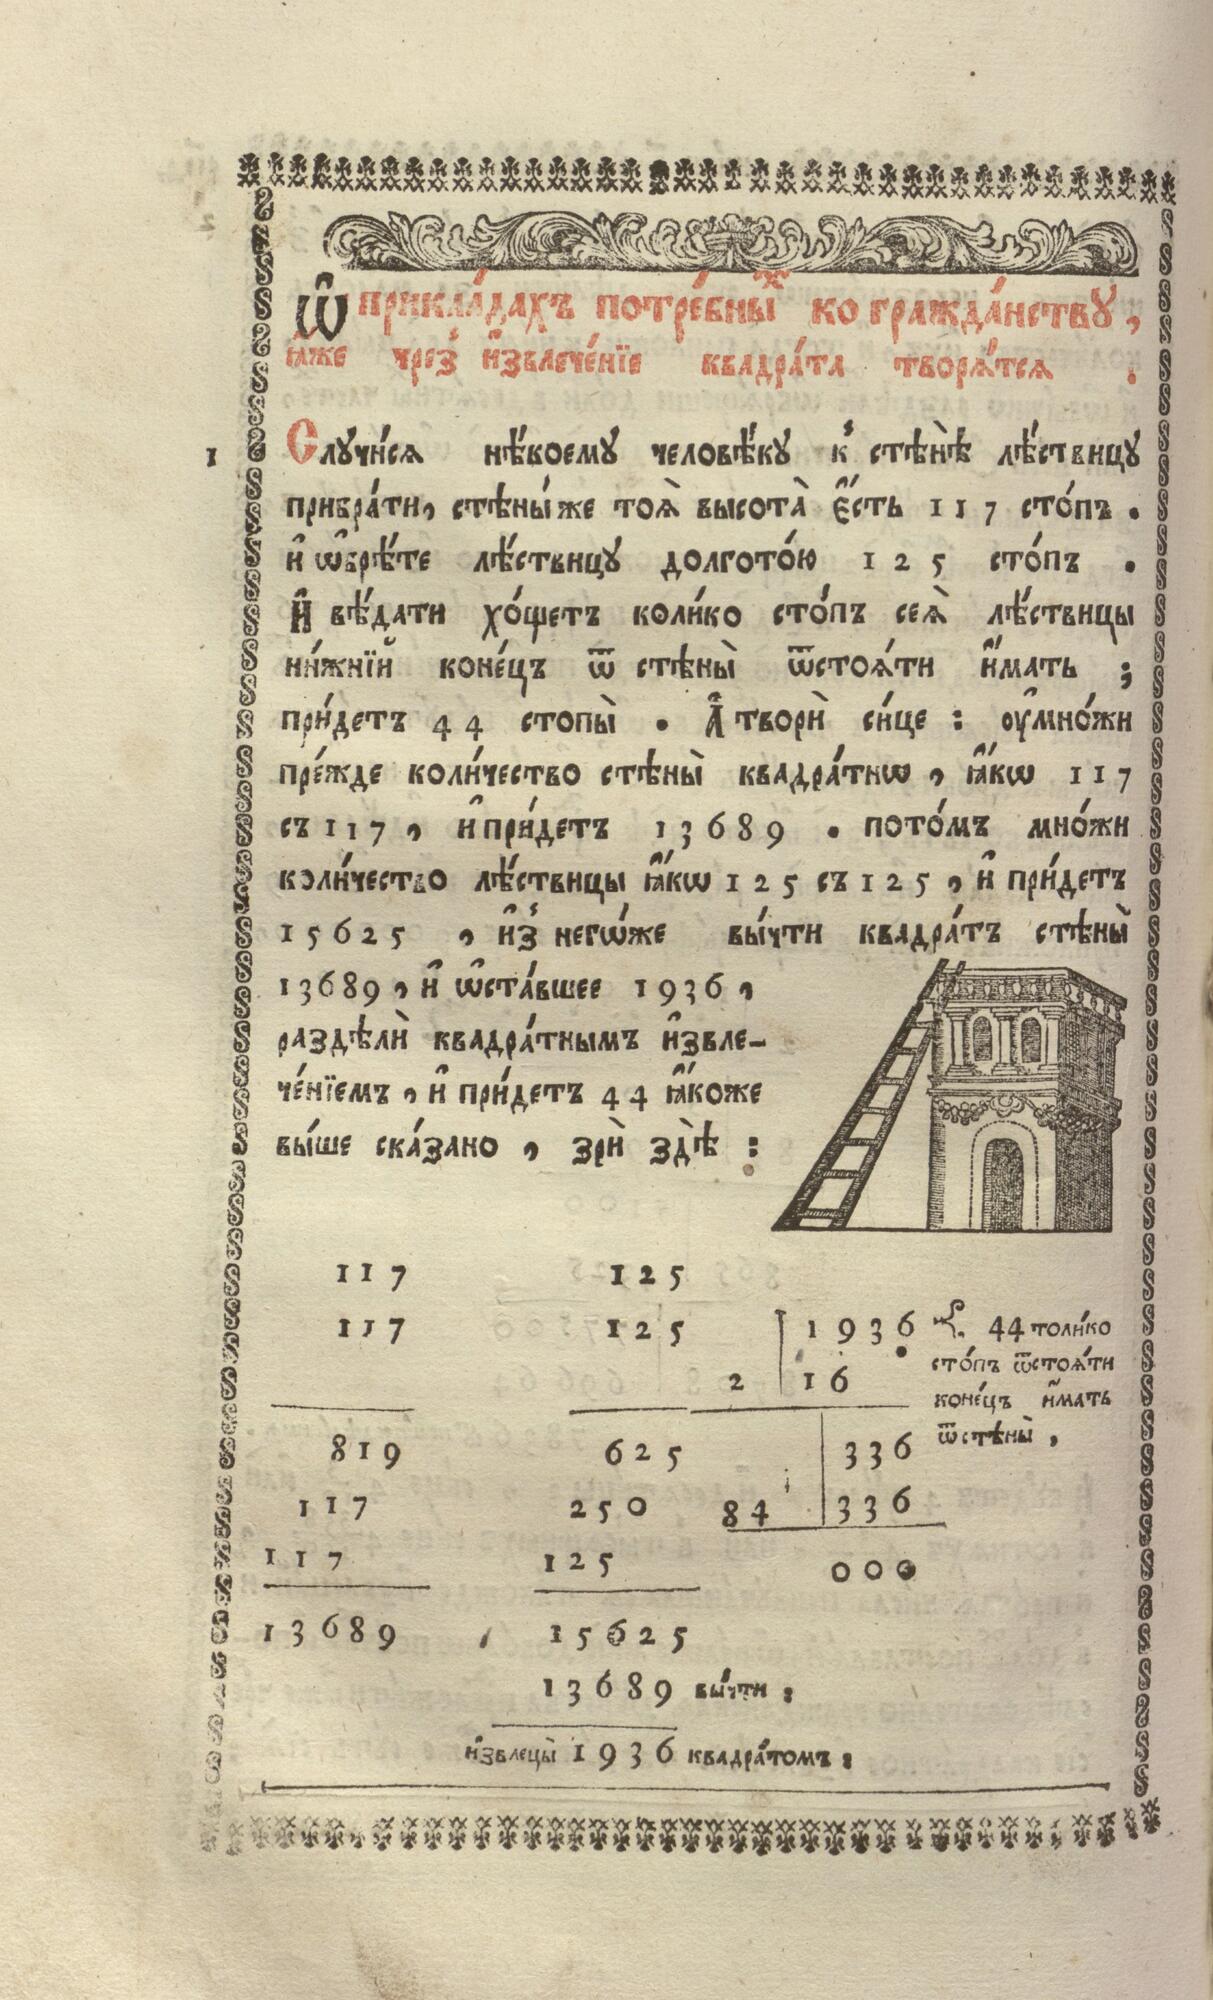 Ѽ прикла́дахъ потре́бныⷯ ко гражда́нству,
ꙗ҆́же чрез̾ и҆звлече́нїе квадра́та творѧ́тсѧ .
1 Случи́сѧ нѣ́коемꙋ человѣ́кꙋ к̾ стѣнѣ̀ лѣ́ствицꙋ
прибра́ти, стѣны́ же тоѧ̀ высота̀ є҆́сть 117 сто́пъ .
и҆ ѡ҆брѣ́те лѣ́ствицꙋ долгото́ю 125 сто́пъ .
И҆ вѣ́дати хо́щетъ коли́ко сто́пъ сеѧ̀ лѣ́ствицы
ни́жнїй коне́цъ ѿ стѣны̀ ѿстоѧ́ти и҆́мать ;
прі́идетъ 44 стопы̀ . А҆ творѝ си́це : ᲂу҆мно́жи
пре́жде коли́чество стѣны̀ квадра́тнѡ , ꙗ҆́кѡ 117
съ 117 , и҆ прі́идетъ 13689 . пото́мъ мно́жи
коли́чество лѣ́ствицы ꙗ҆́кѡ 125 съ 125 , и҆ прі́идетъ
15625 , и҆з̾ негѡ́же вы́чти квадра́тъ стѣны̀
13689 , и҆ ѡ҆ста́вшее 1936 ,
раздѣлѝ квадра́тнымъ и҆звле-
че́нїемъ , и҆ прі́идетъ 44 ꙗ҆́коже
вы́ше ска́зано , зрѝ здѣ̀ :
117 125
117 125 1936 44 толи́ко
сто́пъ ѿстоѧ́ти
2 16 коне́цъ и҆́мать
819 625 336 ѿ стѣны̀ ,
117 250 84 336
117 125 000
13689 15625
13689 вы́чти :
и҆звлецы̀ 1936 квадра́томъ :